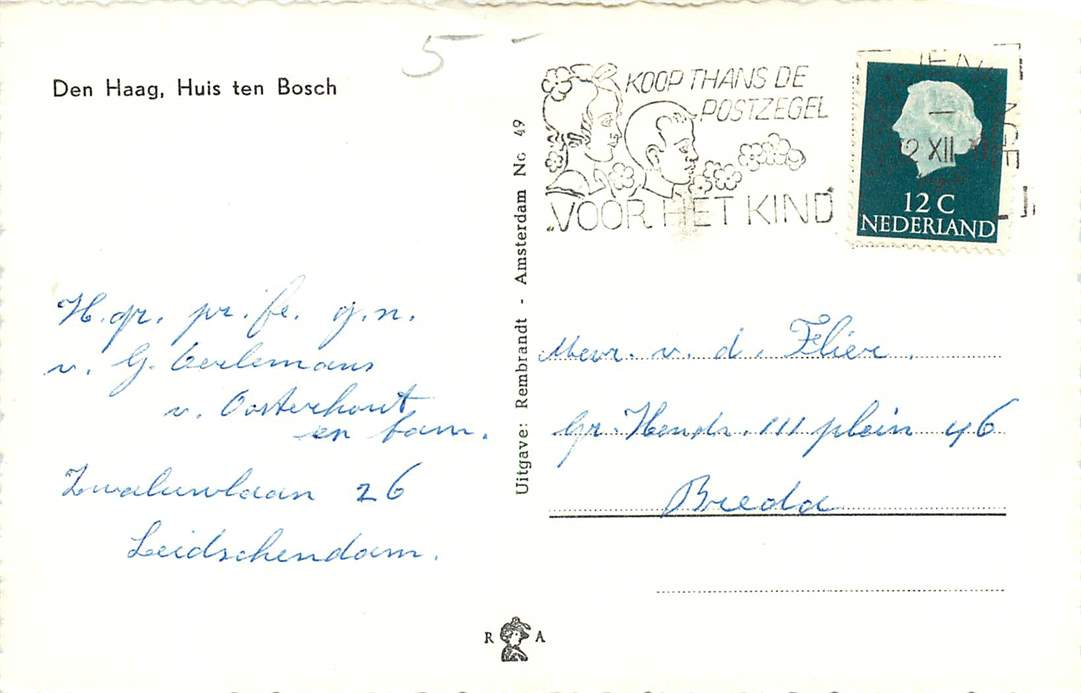 5 -
Den Haag, Huis ten Bosch
KOOP THANS DE
POSTZEGEL
VOOR HET KIND
XII
12 C
NEDERLAND
Uitgave: Rembrandt - Amsterdam No 49
H. gr. pr. fe. g. n.
v. G. Oerlemans
v. Oosterhout
en fam.
Zwaluwlaan 26
Leidschendam.
Mevr. v. d. Flier.
Gr. Hendr. III plein 46
Breda
R A